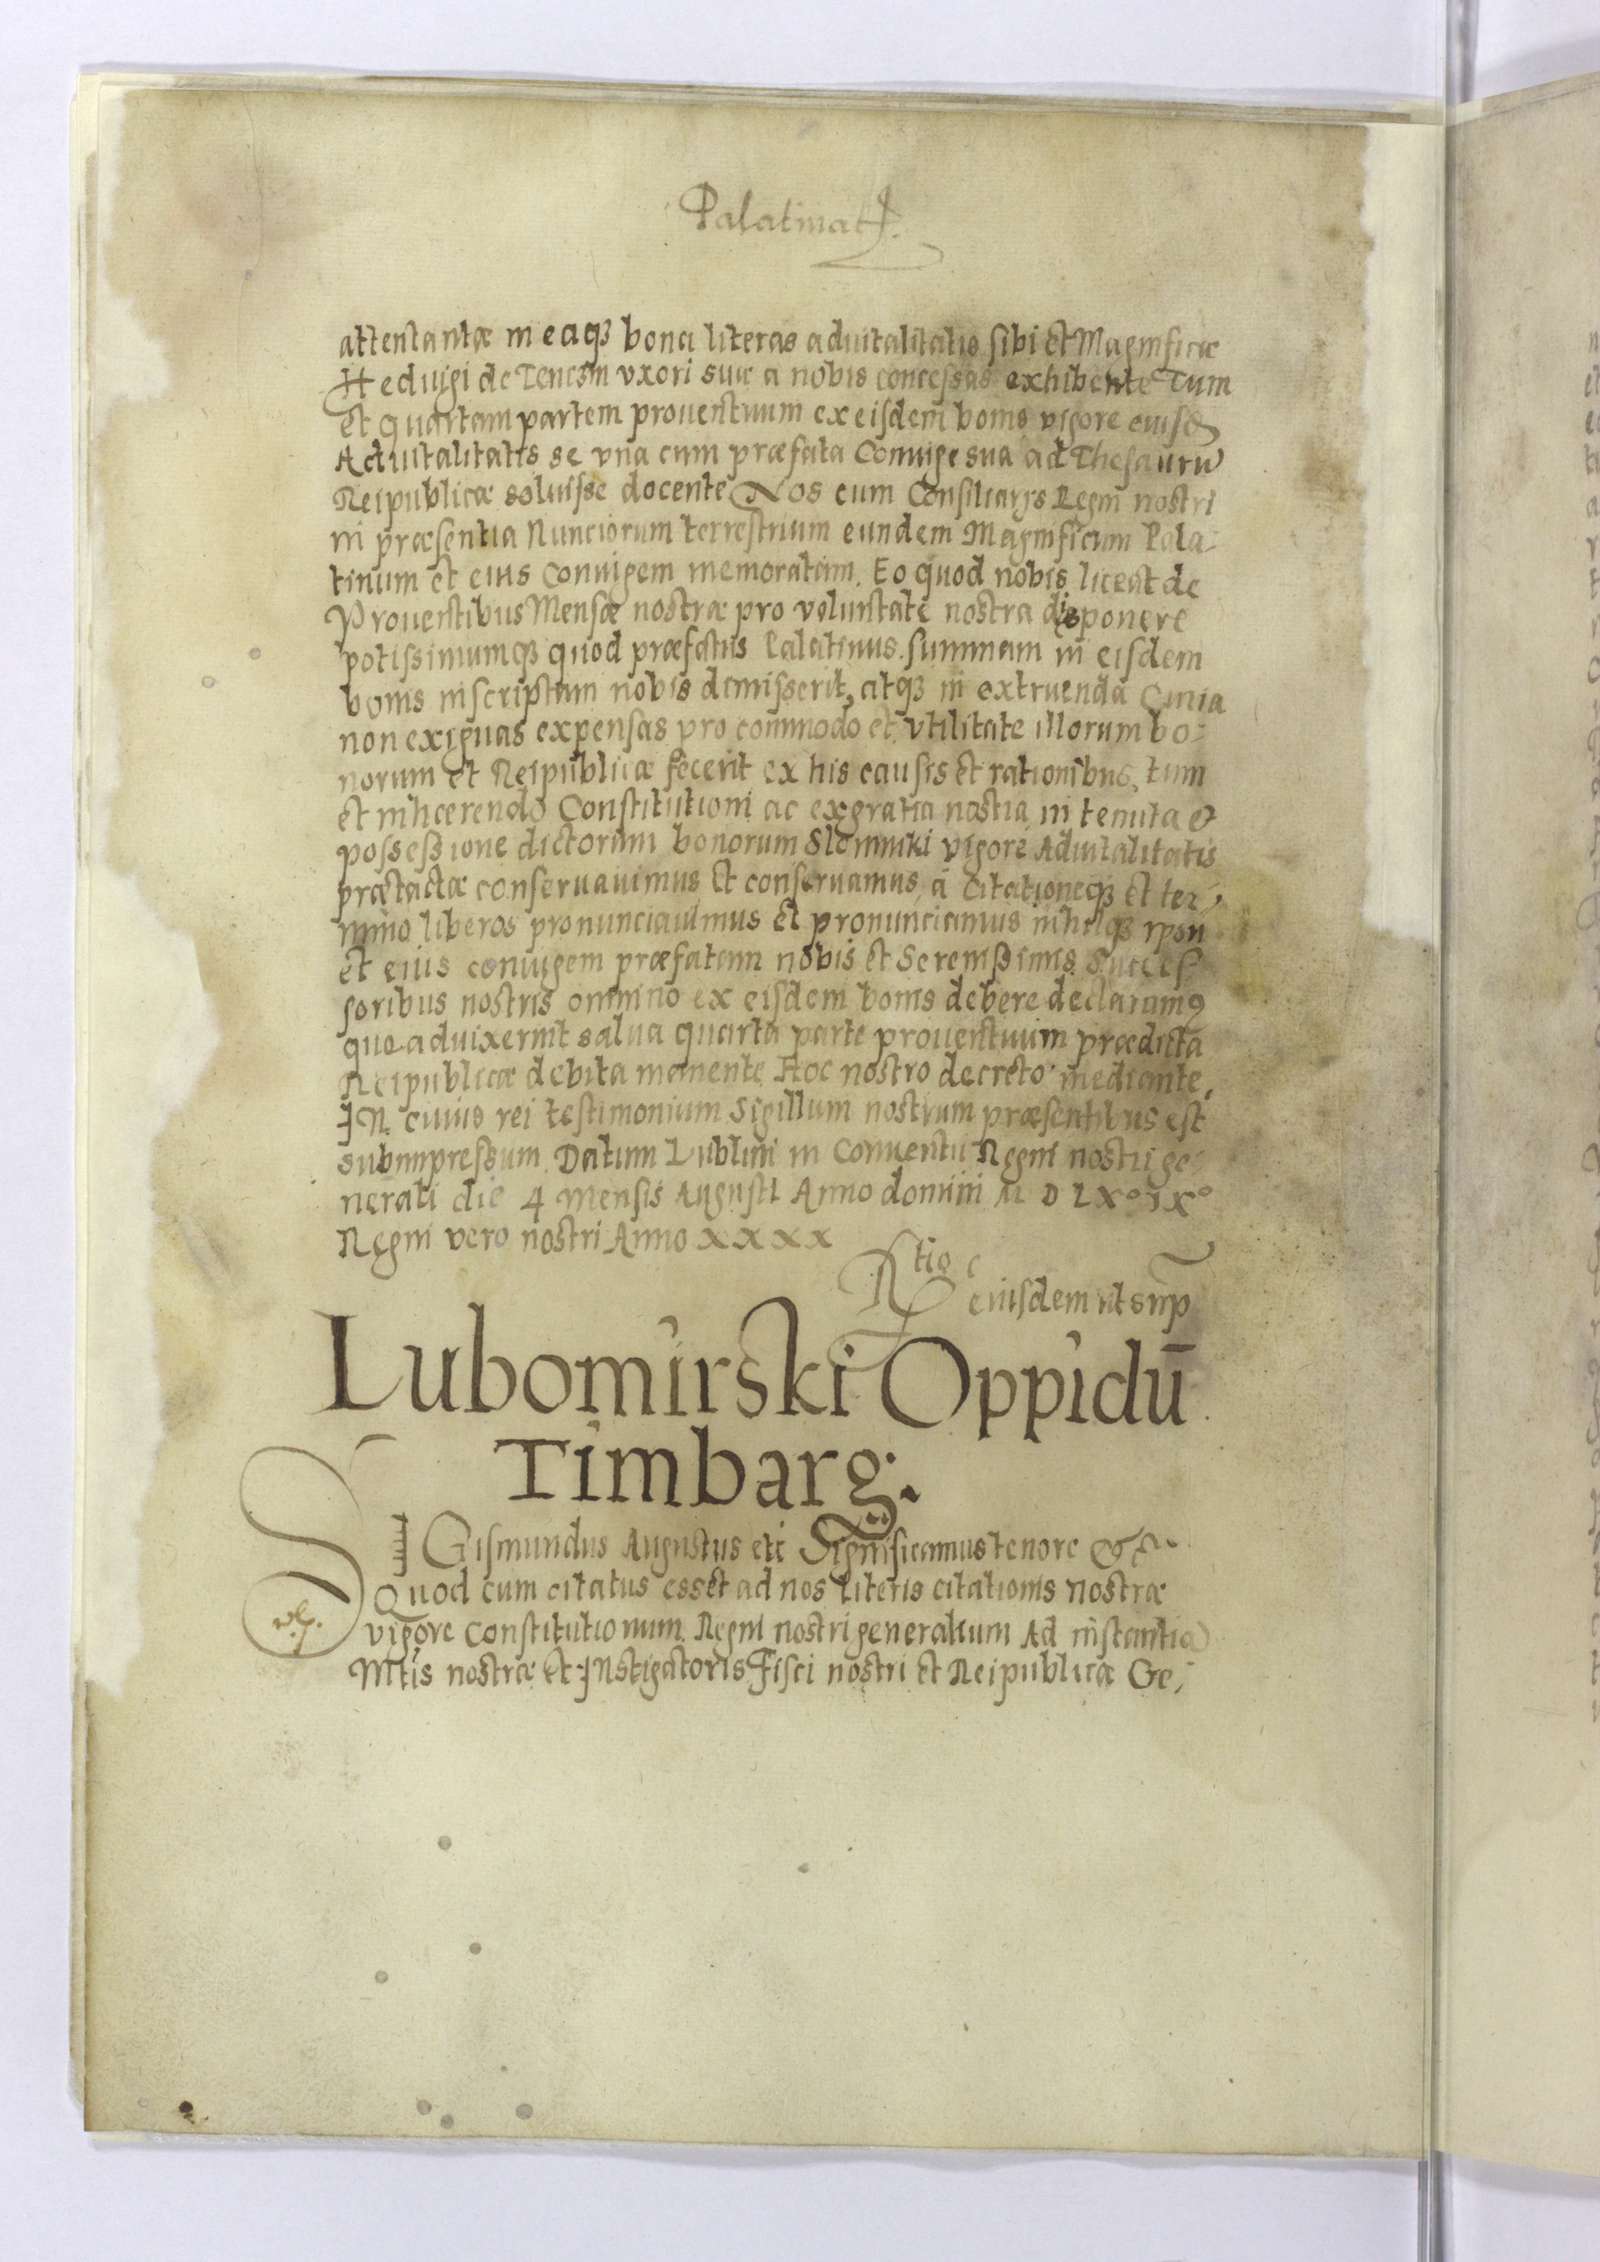 Palatinat
attentantæ in eaq₃ bona literas aduitalitatis sibi et Magnificæ
Heduigi de Tenczin vxori suæ a nobis concessas exhibente Tum
et quartam partem prouentuum ex eisdem bonis vigore eiusd
Aduitalitatis se vna cum præfata Coniuge sua ad Thesauru
Reipublicæ soluisse docente Nos cum Consiliarijs Regni nostri
in præsentia Nunciorum terrestrium eundem Magnificum Pala-
tinum et eius Coniugem memoratam. Eo quod nobis liceat de
Prouentibus Mensæ nostræ pro voluntate nostra disponere
potissimumq₃ quod præfatus Palatinus summam in eisdem
bonis inscriptam nobis dimisserit, atq₃ in extruenda Curia
non exiguas expensas pro commodo et vtilitate illorum bo-
norum et Reipublicæ fecerit ex his causis et rationibus, tum
et inhærendo Constitutioni ac ex gratia nostra in tenuta &
possessione dictorum bonorum Slomniki vigore Aduitalitatis
prætactæ conseruauimus et conseruamus, a Citationeq₃ et ter-
mino liberos pronunciauimus et pronunciamus nihilq₃ ipsum
et eius coniugem præfatam nobis et Serenissimis Succes-
soribus nostris omnino ex eisdem bonis debere declaramus
quoaduixerint salua quarta parte prouentuum prædicta
Reipublicæ debita manente Hoc nostro decreto mediante.
IN cuius rei testimonium Sigillum nostrum præsentibus est
subimpressum. Datum Lublini in Conuentu Regni nostri ge-
nerali die 4 Mensis Augusti Anno domini M D LX° IX°
Regni vero nostri Anno XXXX
Rtio
eiusdem ut sup
Lubomirski Oppidū
Timbarg.
SIGismundus Augustus etc Significamus tenore &c
Quod cum citatus esset ad nos literis citationis nostræ
vigore Constitutionum Regni nostri generalium Ad instantia
Mtis nostræ et INstigatoris Fisci nostri et Reipublicæ Ge-